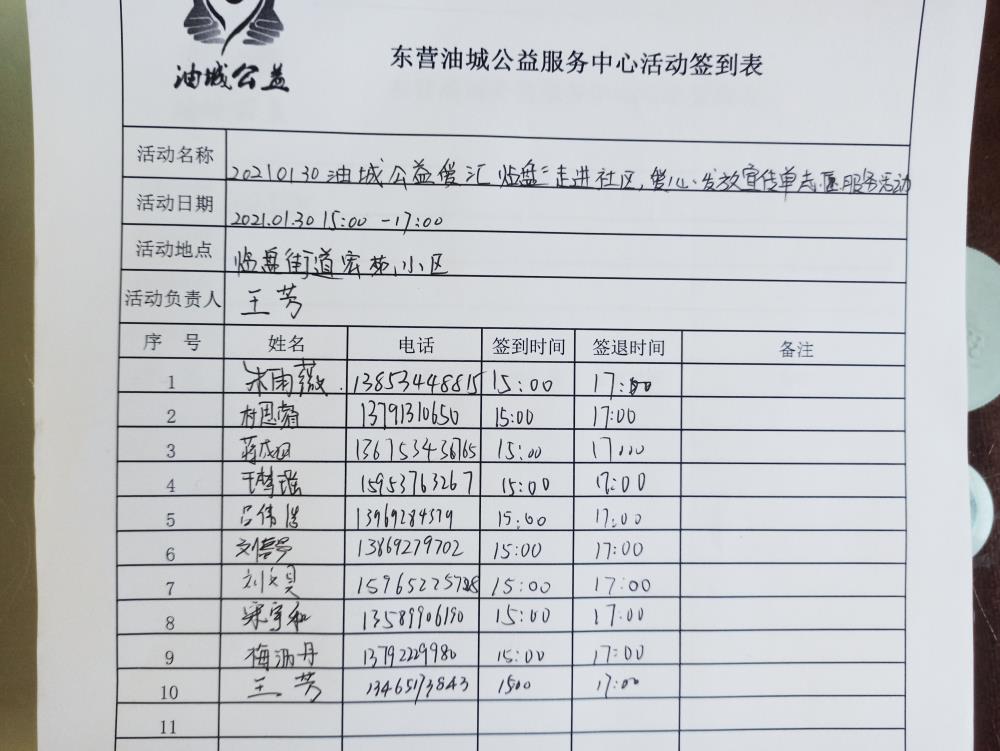 油城公益
东营油城公益服务中心活动签到表
活动名称 20210130油城公益爱汇临盘"走进社区,爱心、发放宣传单志愿服务活动
活动日期 2021.01.30 15:00 -17:00
活动地点 临盘街道 小区
活动负责人 王芳
序 号 姓名 电话 签到时间 签退时间 备注
1 朱雨薇 13853448815 15:00 17:00
2 13791310650 15:00 17:00
3 蒋成田 15:00 17:00
4 王梦瑶 15953763267 15:00 17:00
5 吕伟浩 13969284579 15:00 17:00
6 13869279702 15:00 17:00
7 刘文昊 15:00 17:00
8 宋宇和 13589906190 15:00 17:00
9 梅沥丹 13792229980 15:00 17:00
10 王芳 13465173843 1500 17:00
11